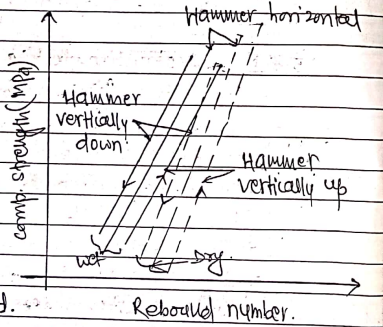 Hammer horizontal
Hammer
vertically
down
Hammer
vertically up
comp. strength (MPa)
wet
Dry
d.
Rebound number.